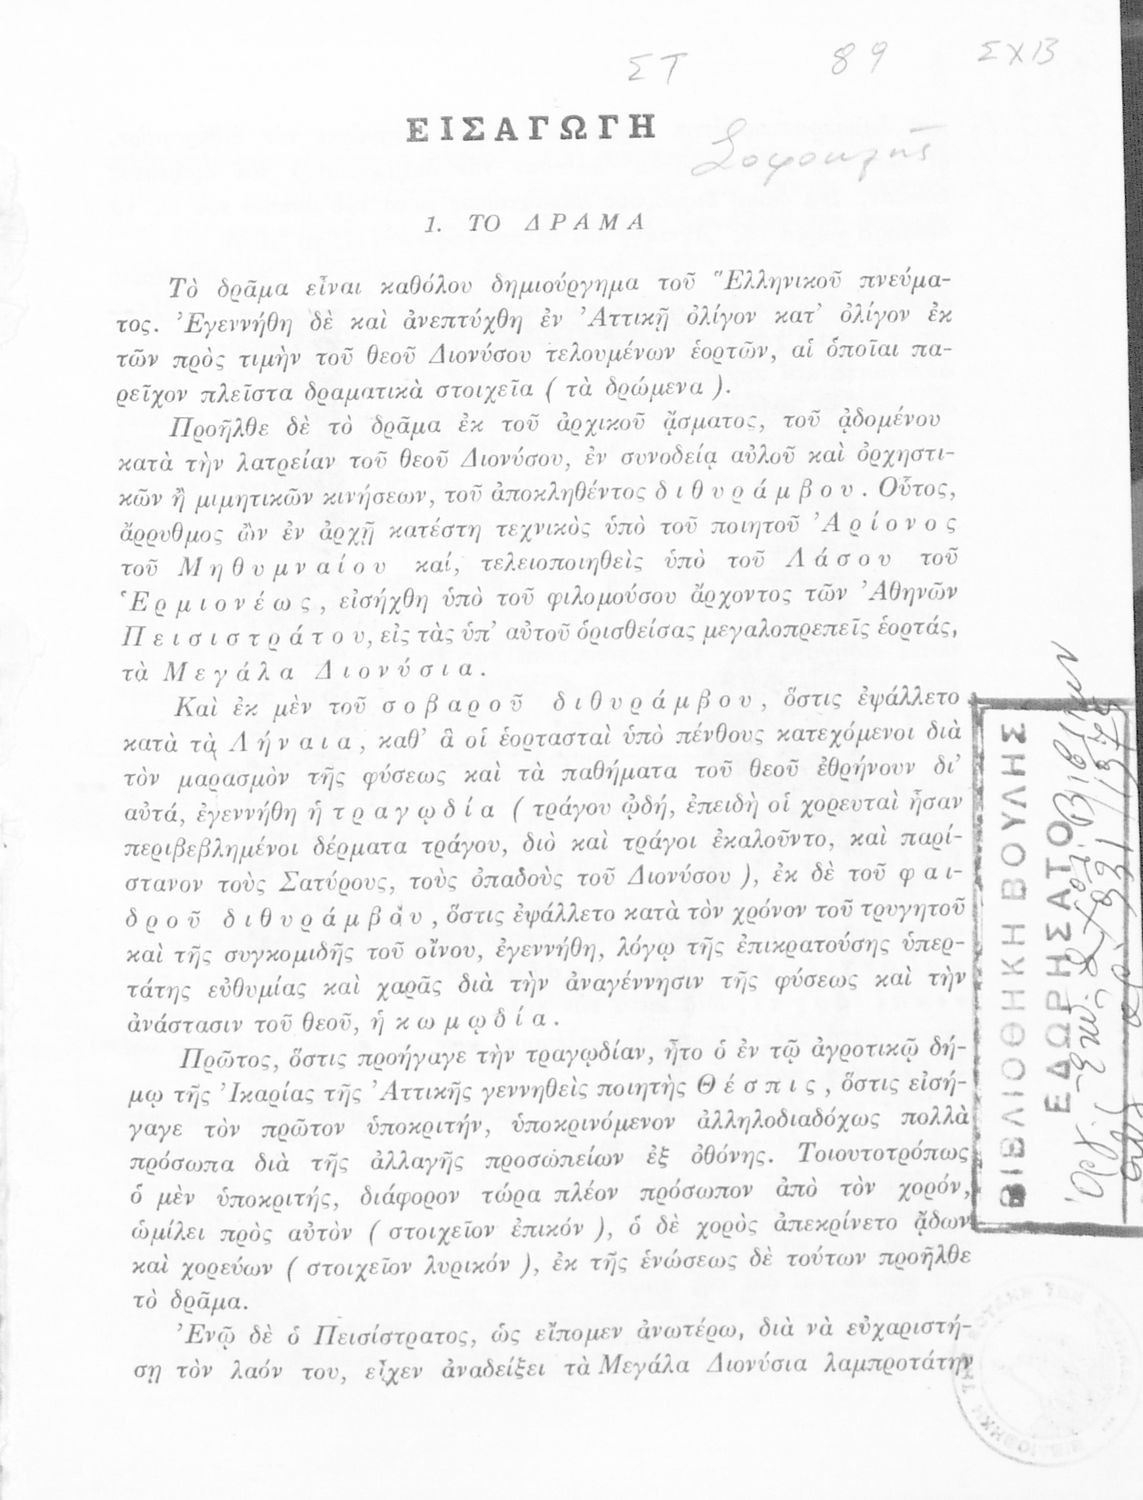 ΣΤ 89 ΣΧΒ
ΕΙΣΑΓΩΓΗ
Σοφοκλῆς
1. ΤΟ ΔΡΑΜΑ
Τὸ δρᾶμα εἶναι καθόλου δημιούργημα τοῦ Ἑλληνικοῦ πνεύμα-
τος. Ἐγεννήθη δὲ καὶ ἀνεπτύχθη ἐν Ἀττικῇ ὀλίγον κατ’ ὀλίγον ἐκ
τῶν πρὸς τιμὴν τοῦ θεοῦ Διονύσου τελουμένων ἑορτῶν, αἱ ὁποῖαι πα-
ρεῖχον πλεῖστα δραματικὰ στοιχεῖα ( τὰ δρώμενα ).
Προῆλθε δὲ τὸ δρᾶμα ἐκ τοῦ ἀρχικοῦ ᾄσματος, τοῦ ᾀδομένου
κατὰ τὴν λατρείαν τοῦ θεοῦ Διονύσου, ἐν συνοδείᾳ αὐλοῦ καὶ ὀρχηστι-
κῶν ἢ μιμητικῶν κινήσεων, τοῦ ἀποκληθέντος διθυράμβου. Οὗτος,
ἄρρυθμος ὢν ἐν ἀρχῇ κατέστη τεχνικὸς ὑπὸ τοῦ ποιητοῦ Ἀρίονος
τοῦ Μηθυμναίου καί, τελειοποιηθεὶς ὑπὸ τοῦ Λάσου τοῦ
Ἑρμιονέως, εἰσήχθη ὑπὸ τοῦ φιλομούσου ἄρχοντος τῶν Ἀθηνῶν
Πεισιστράτου, εἰς τὰς ὑπ’ αὐτοῦ ὁρισθείσας μεγαλοπρεπεῖς ἑορτάς,
τὰ Μεγάλα Διονύσια.
Καὶ ἐκ μὲν τοῦ σοβαροῦ διθυράμβου, ὅστις ἐψάλλετο
κατὰ τὰ Λήναια, καθ’ ἃ οἱ ἑορτασταὶ ὑπὸ πένθους κατεχόμενοι διὰ
τὸν μαρασμὸν τῆς φύσεως καὶ τὰ παθήματα τοῦ θεοῦ ἐθρήνουν δι’
αὐτά, ἐγεννήθη ἡ τραγῳδία ( τράγου ᾠδή, ἐπειδὴ οἱ χορευταὶ ἦσαν
περιβεβλημένοι δέρματα τράγου, διὸ καὶ τράγοι ἐκαλοῦντο, καὶ παρί-
στανον τοὺς Σατύρους, τοὺς ὀπαδοὺς τοῦ Διονύσου ), ἐκ δὲ τοῦ φαι-
δροῦ διθυράμβου, ὅστις ἐψάλλετο κατὰ τὸν χρόνον τοῦ τρυγητοῦ
καὶ τῆς συγκομιδῆς τοῦ οἴνου, ἐγεννήθη, λόγῳ τῆς ἐπικρατούσης ὑπερ-
τάτης εὐθυμίας καὶ χαρᾶς διὰ τὴν ἀναγέννησιν τῆς φύσεως καὶ τὴν
ἀνάστασιν τοῦ θεοῦ, ἡ κωμῳδία.
Πρῶτος, ὅστις προήγαγε τὴν τραγῳδίαν, ἦτο ὁ ἐν τῷ ἀγροτικῷ δή-
μῳ τῆς Ἰκαρίας τῆς Ἀττικῆς γεννηθεὶς ποιητὴς Θέσπις, ὅστις εἰσή-
γαγε τὸν πρῶτον ὑποκριτήν, ὑποκρινόμενον ἀλληλοδιαδόχως πολλὰ
πρόσωπα διὰ τῆς ἀλλαγῆς προσωπείων ἐξ ὀθόνης. Τοιουτοτρόπως
ὁ μὲν ὑποκριτής, διάφορον τώρα πλέον πρόσωπον ἀπὸ τὸν χορόν,
ὡμίλει πρὸς αὐτὸν ( στοιχεῖον ἐπικόν ), ὁ δὲ χορὸς ἀπεκρίνετο ᾄδων
καὶ χορεύων ( στοιχεῖον λυρικόν ), ἐκ τῆς ἑνώσεως δὲ τούτων προῆλθε
τὸ δρᾶμα.
Ἐνῷ δὲ ὁ Πεισίστρατος, ὡς εἴπομεν ἀνωτέρω, διὰ νὰ εὐχαριστή-
σῃ τὸν λαόν του, εἶχεν ἀναδείξει τὰ Μεγάλα Διονύσια λαμπροτάτην
ΒΙΒΛΙΟΘΗΚΗ ΒΟΥΛΗΣ
ΕΔΩΡΗΣΑΤΟ
Ὀργ. Ἐκδ. Σχολ. Βιβλίων